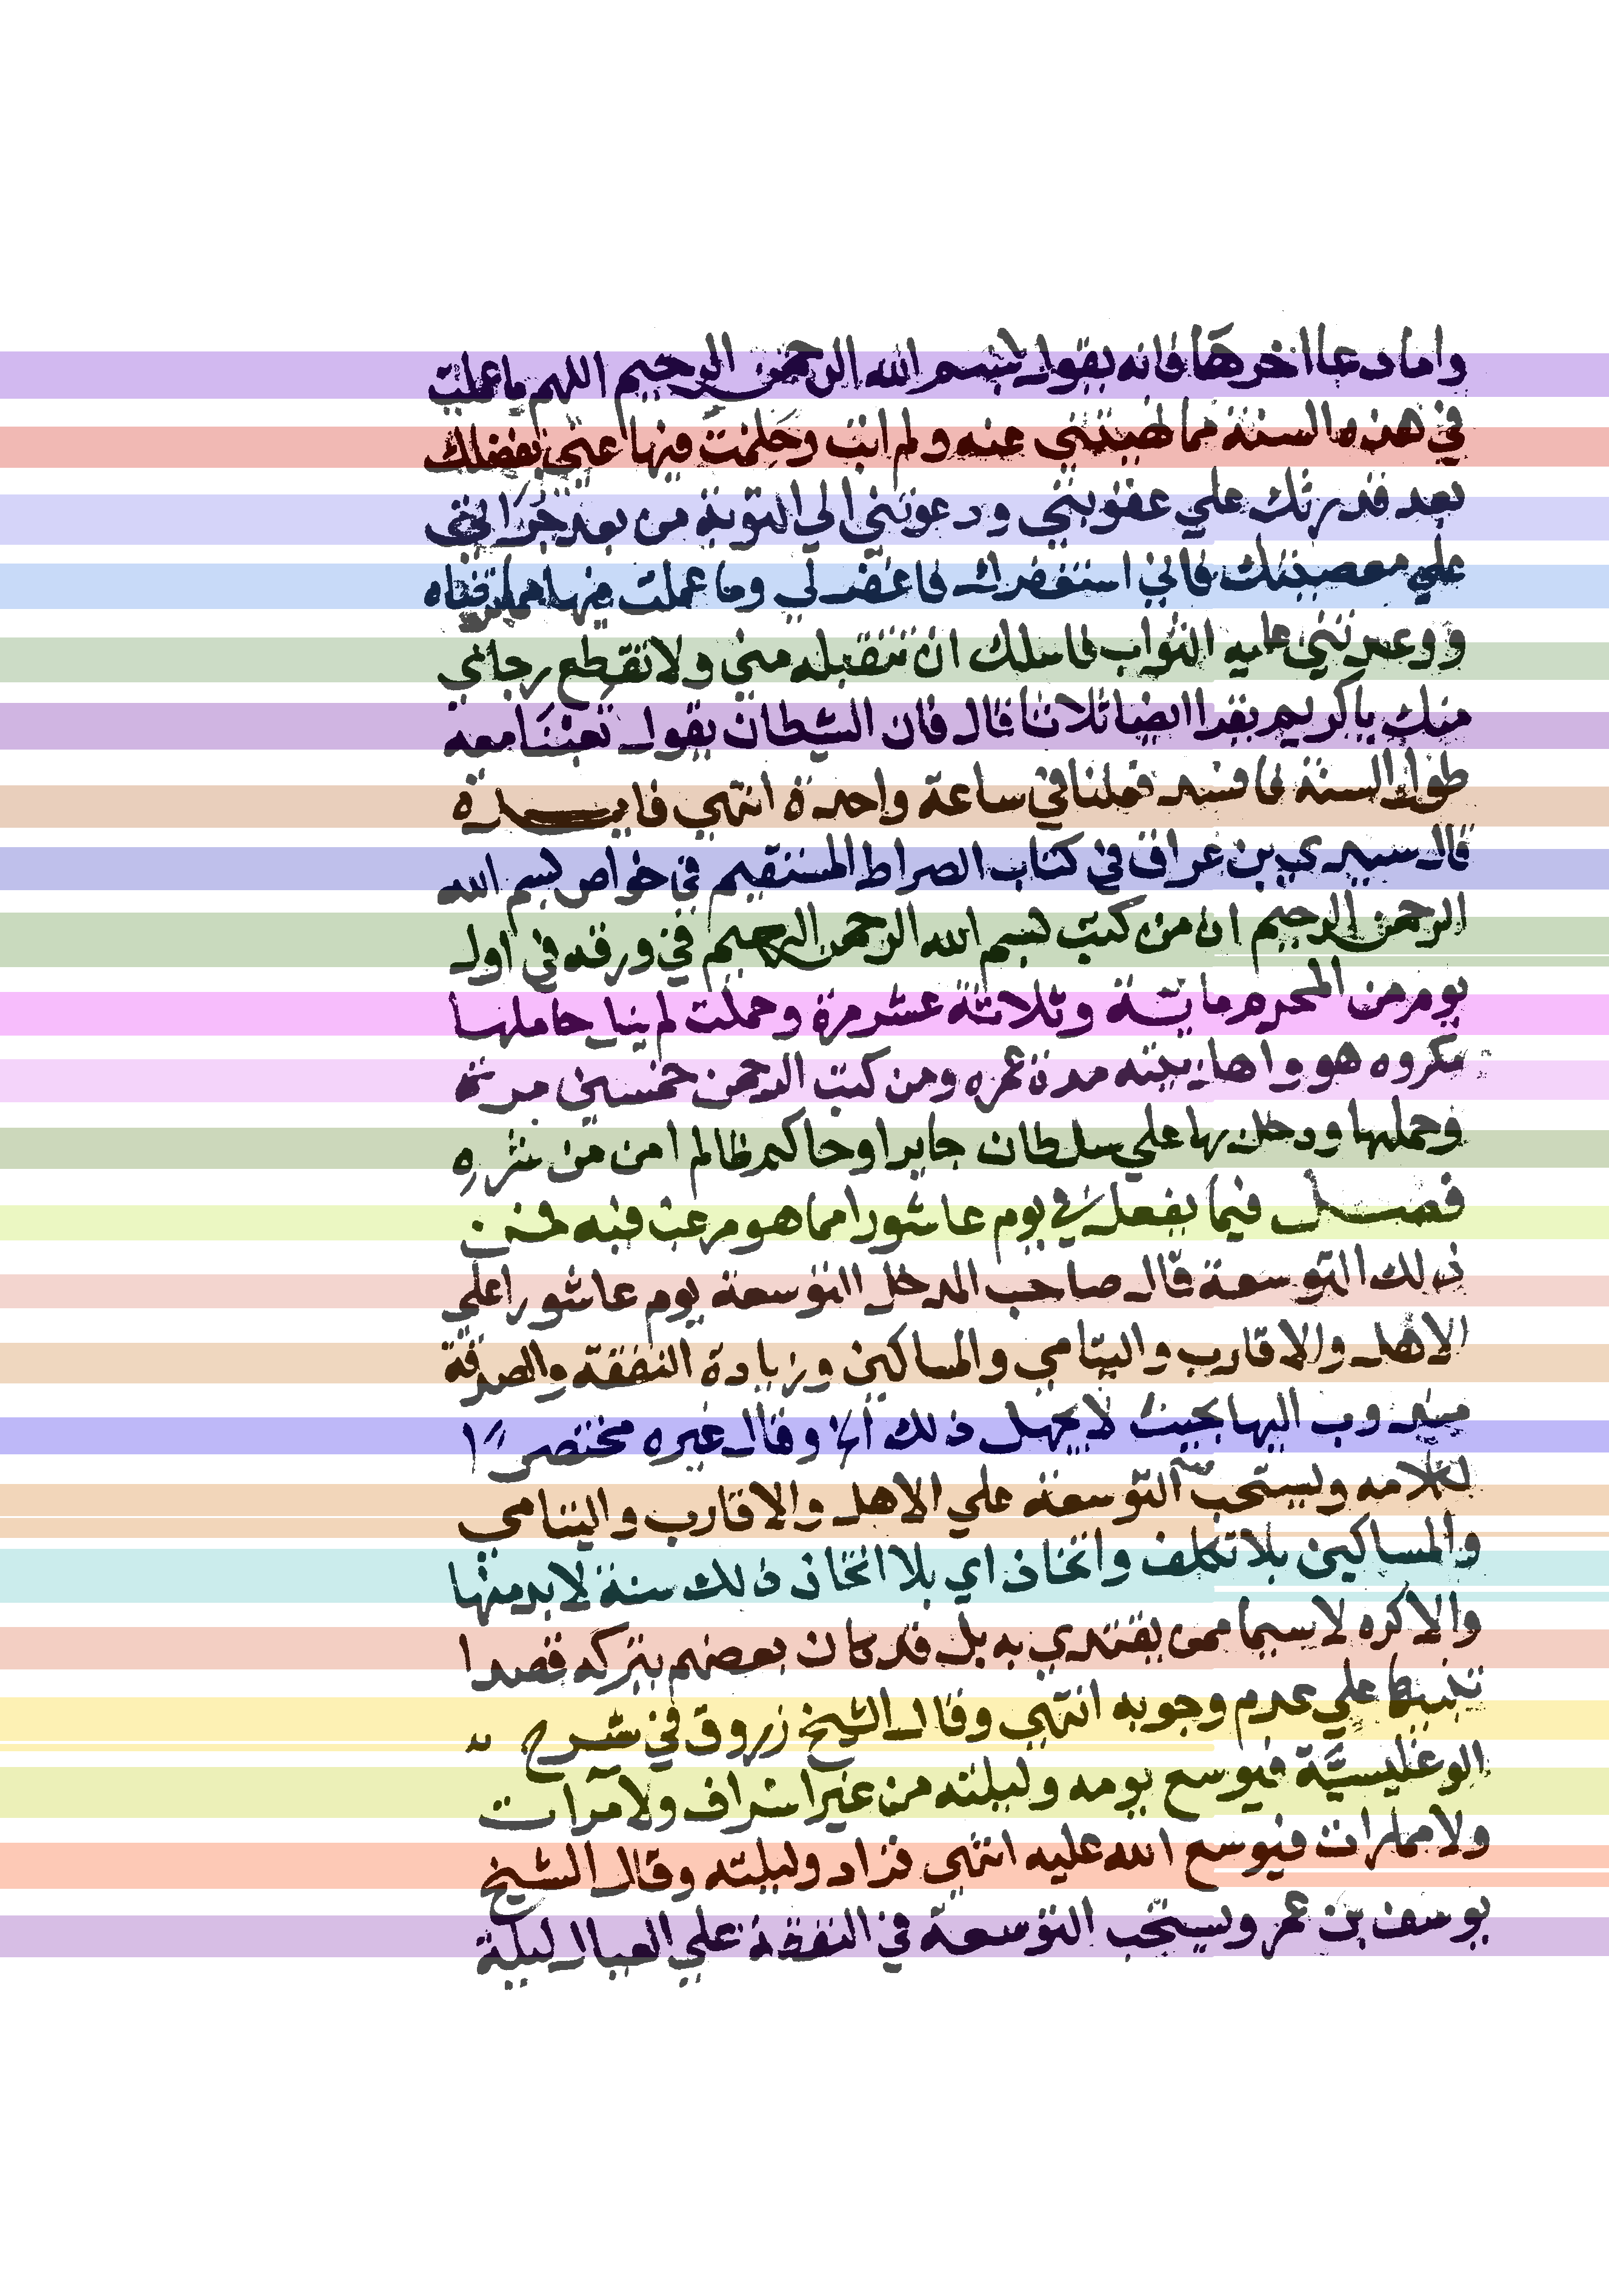 واما دعا اخرها فانه يقول بسم الله الرحمن الرحيم اللهم ما عملت
في هذه السنة مما نهيتني عنه ولم اتب وحلمت فيها عني بفضلك
بعد قدرتك علي عقوبتي ودعوتني الي التوبة من بعد جراتي
علي معصيتك فاني استغفرك فاغفر لي وما عملت فيها مما ترضاه
ووعدتني عليه الثواب فاسلك ان تتقبله مني ولا تقطع رجاني
منك ياكريم يقرا ايضا ثلاثا قال فان الشطان يقول تعبنا معه
طول السنة فافسد فعلنا في ساعة واحدة انتهي فايدة
قال سيدي بن عراق في كتاب الصراط المستقيم في خواص بسم الله
الرحمن الرحيم ان من كتب بسم الله الرحمن الرحيم في ورقه في اول
يوم من المحرم ماية وثلاثة عشر مرة وحملت لم ينا حاملها
مكروه هو واهل بيته مدة عمره ومن كتب الرحمن خمسين مرة
وحملها ودخل بها علي سلطان جاير او حاكم ظالم امن من شره
فصل فيما يفعل في يوم عاشورا مما هو مرغب فيه فمن
ذلك التوسعة قال صاحب المدخل التوسعة يوم عاشورا علي
الاهل والاقارب واليتامي والمساكين وزيادة النفقة والصدقة
مندوب اليها بحيث لا يجهل ذلك اه وقال غيره مختصرا
لكلامه ويستحب التوسعة علي الاهل والاقارب واليتامي
والمساكين بلا تكلف واتخاذ اي بلا اتخاذ ذلك سنة لابد منها
والا كره لاسيما ممن يقتدي به بل قد كان بعضهم يتركه قصدا
تنبيها علي عدم وجوبه انتهي وقال الشيخ زروق في شرح
الوغليسية فيوسع يومه وليلته من غير اسراف ولا مرات
ولا ممارات فيوسع الله عليه انتهي فزاد وليلته وقال الشيخ
يوسف بن عمر ويستحب التوسعة في النفقة علي العيال ليلة